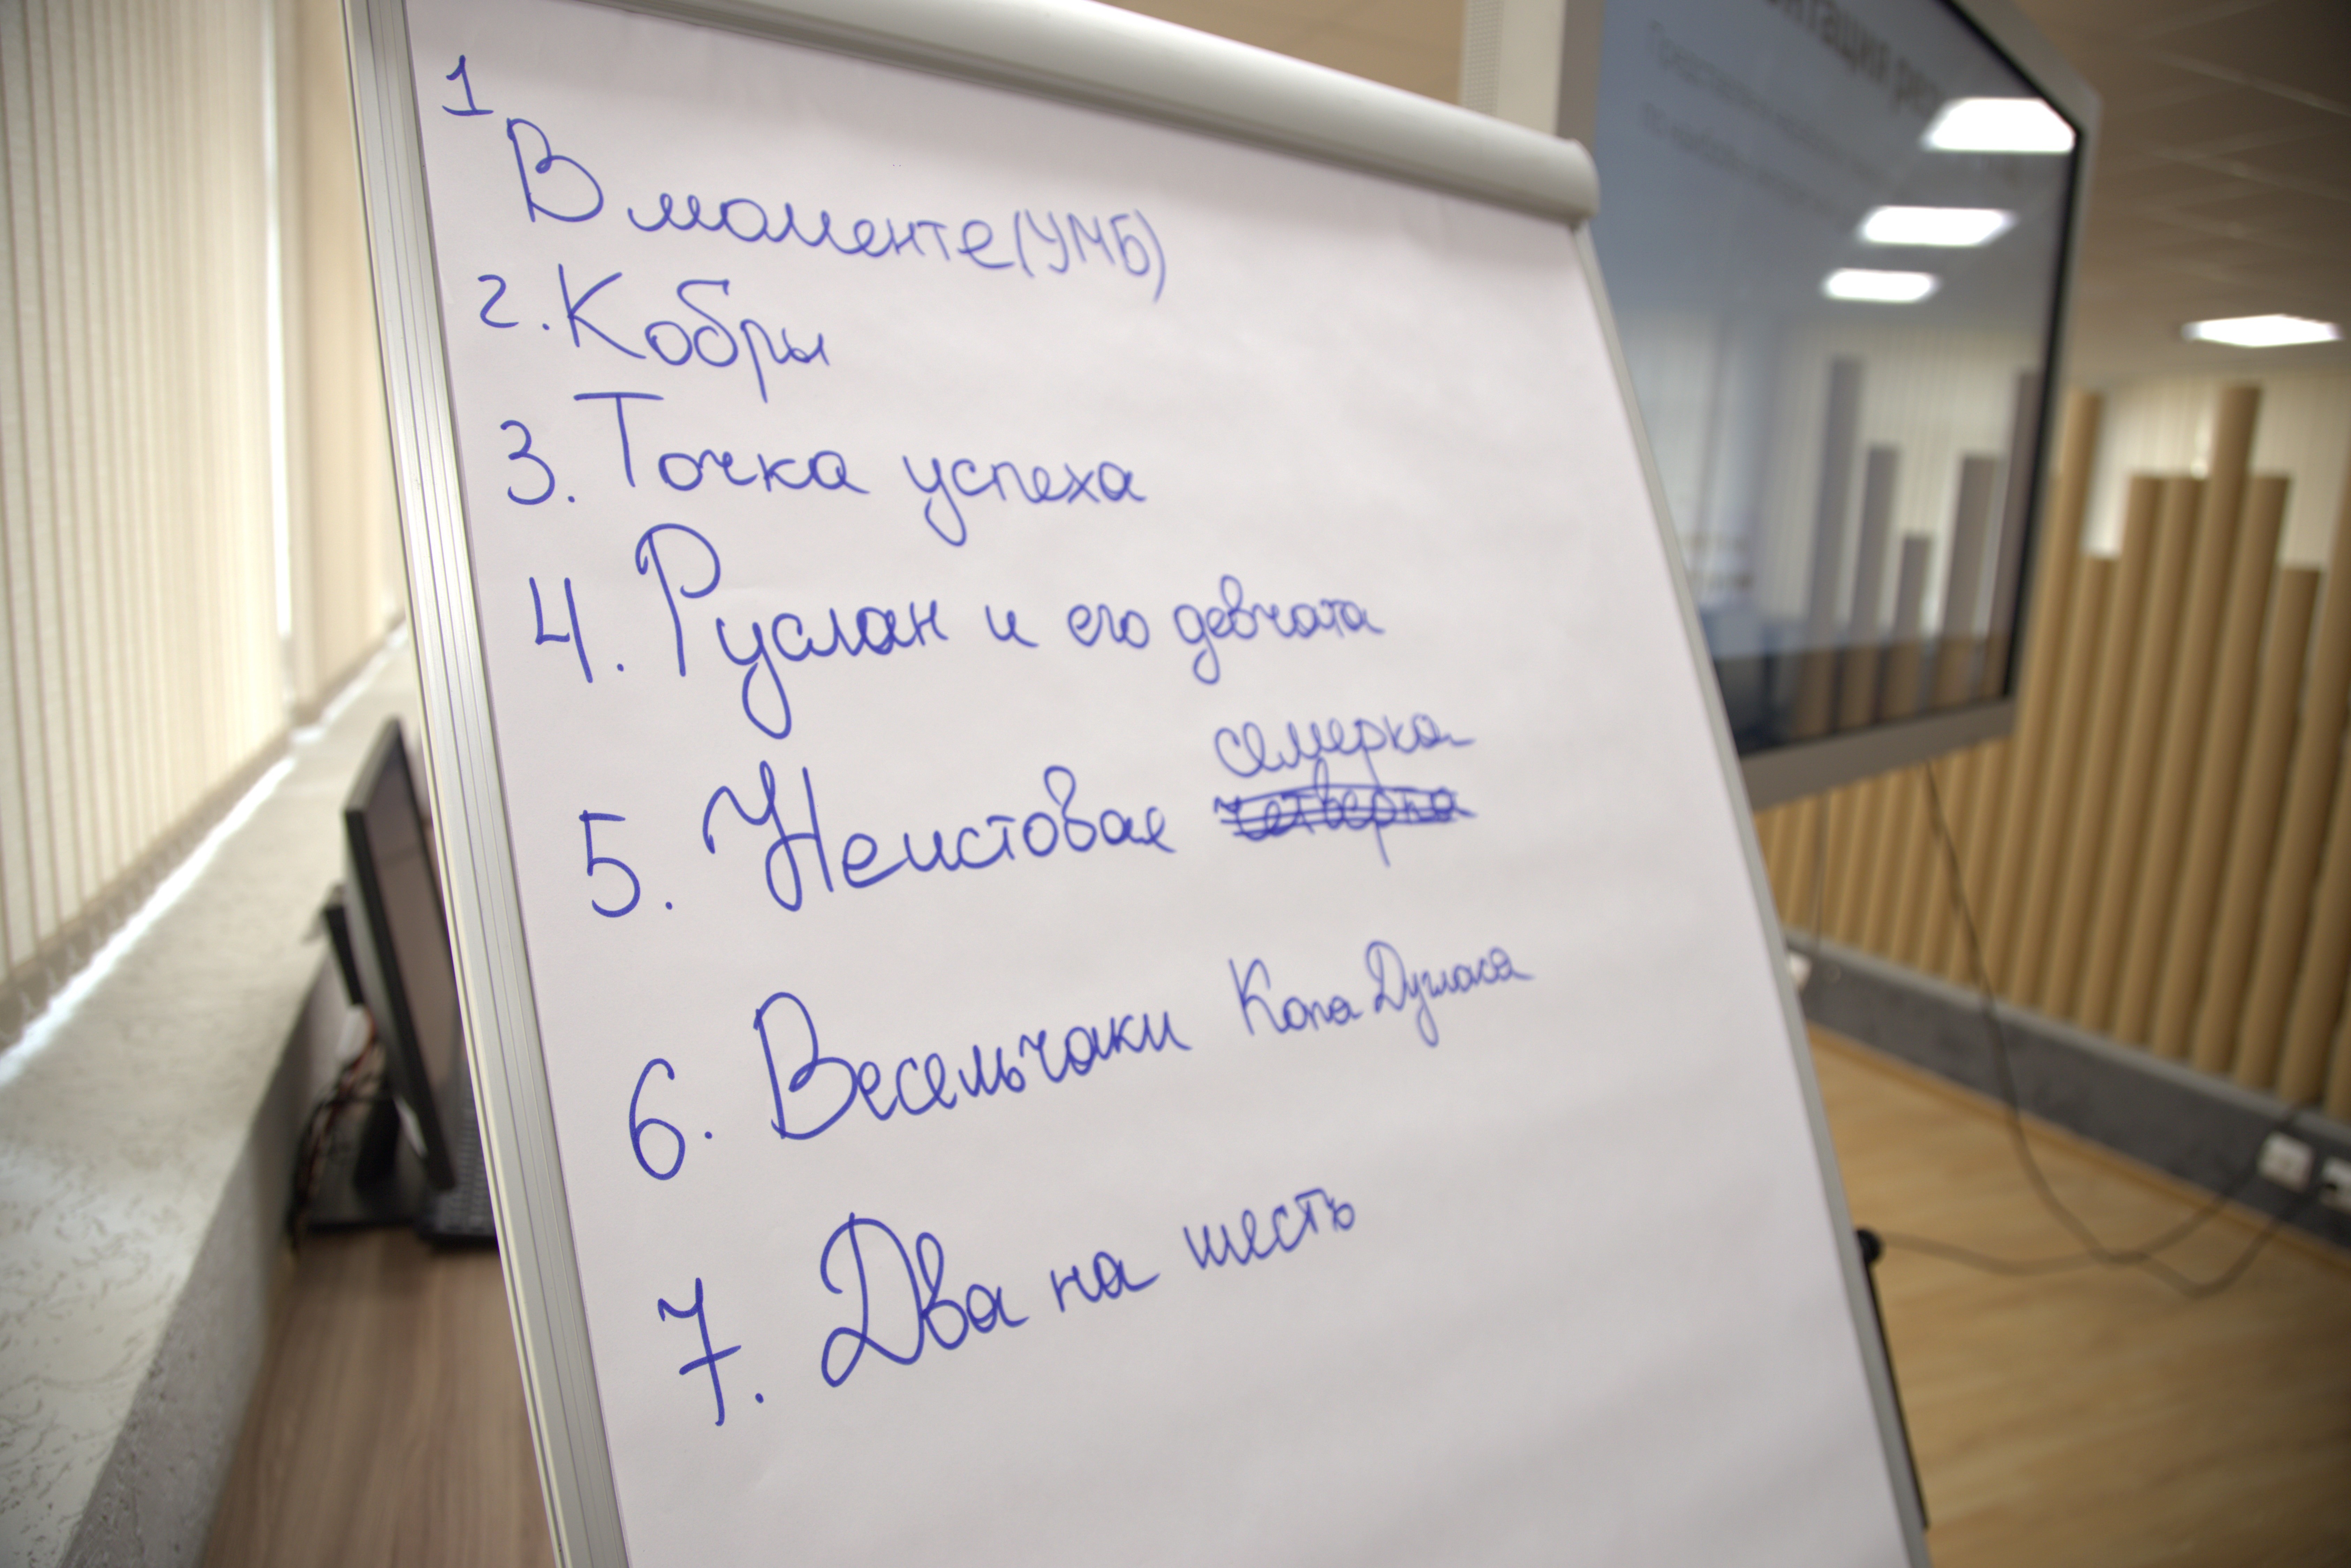 1
В моменте (УМБ)
2. Кобры
3. Точка успеха
4. Руслан и его девчата
семерка
5. Неистовая четверка
6. Весельчаки Копа Дугласа
7. Два на шесть